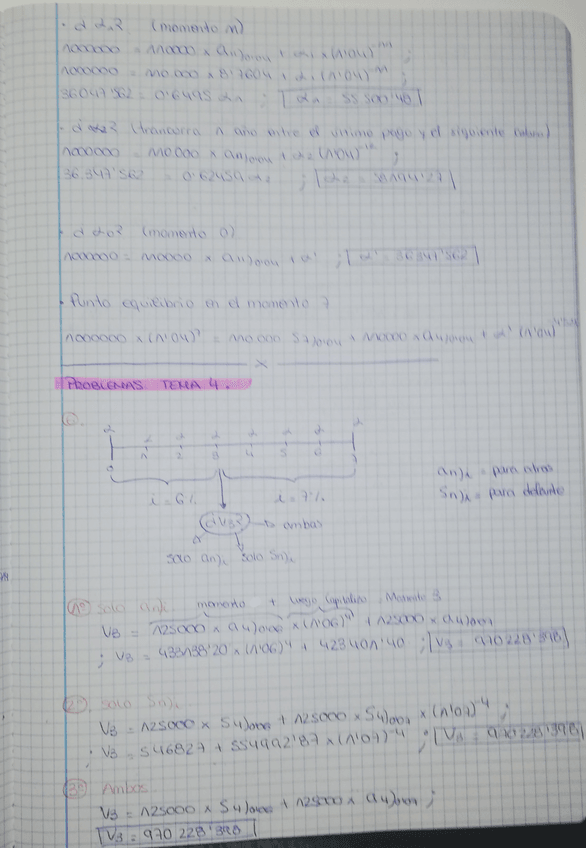 · d α₁? (momento 11)
1000000 = 110000 × a11⌉0'04 + α₁ × (1'04)⁻¹¹ ;
1000000 = 110.000 × 8'7604 + α₁ (1'04)⁻¹¹ ;
36047'562 = 0'6495 α₁ ; α₁ =
· d α₂? (transcurra 1 año entre el último pago y el siguiente
1000000 = 110.000 × a11⌉0'04 + α₂ (1'04)⁻¹² ;
36.347'562 = 0'62459 α₂ ;
· d α₀? (momento 0)
1000000 = 110000 × a11⌉0'04 + α' ; α' = 36347'562
· Punto equilibrio en el momento 7
1000000 × (1'04)⁷ = 110.000 S7⌉0'04 + 110000 × a4⌉0'04 + α' (1'04)
x
PROBLEMAS TEMA 4.
6.
α α α α α α α α
0 1 2 3 4 5 6 7
i = 6% i = 7%
an⌉i = para atrás
Sn⌉i = para delante
d V3? → ambas
solo an⌉i solo Sn⌉i
1º solo an⌉i momento + luego capitalizo. Momento 3
V3 = 125000 × a4⌉0'06 × (1'06)⁴ + 125000 × a4⌉0'07
; V3 = 433138'20 × (1'06)⁴ + 423401'40 ; V3 = 970228'398
2º solo Sn⌉i
V3 = 125000 × S4⌉0'06 + 125000 × S4⌉0'07 × (1'07)⁻⁴ ;
; V3 = 546827 + 554992'87 × (1'07)⁻⁴ ; V3 = 970228'398
3º Ambos
V3 = 125000 × S4⌉0'06 + 125000 × a4⌉0'07 ;
V3 = 970228'398